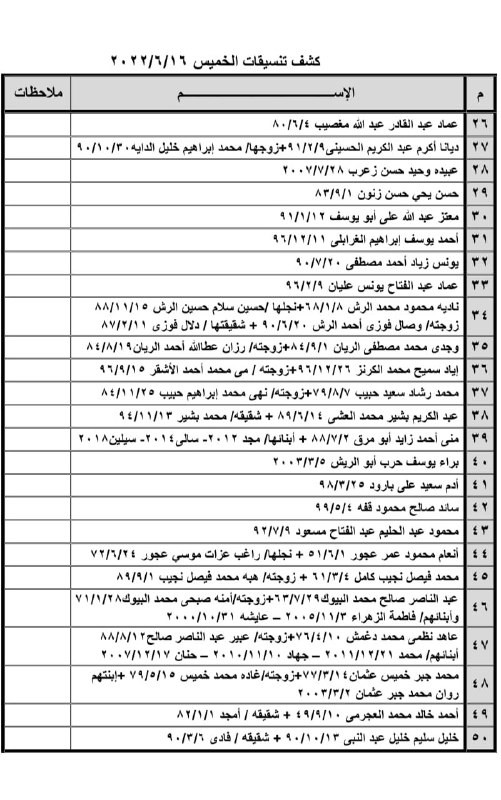 كشف تنسيقات الخميس ٢٠٢٢/٦/١٦
م الإســـــم ملاحظات
٢٦ عماد عبد القادر عبد الله مغصيب ٨٠/٦/٤
٢٧ ديانا أكرم عبد الكريم الحسينى٩١/٢/٩+زوجها/ محمد إبراهيم خليل الدايه٩٠/١٠/٣٠
٢٨ عبيده وحيد حسن زعرب ٢٠٠٧/٧/٢٨
٢٩ حسن يحي حسن زنون ٨٣/٩/١
٣٠ معتز عبد الله على أبو يوسف ٩١/١/١٢
٣١ أحمد يوسف إبراهيم الغرابلى ٩٦/١٢/١١
٣٢ يونس زياد أحمد مصطفى ٩٠/٧/٢٠
٣٣ عماد عبد الفتاح يونس عليان ٩٦/٢/٩
٣٤ ناديه محمود محمد الرش ٦٨/١/٨+نجلها /حسين سلام حسين الرش ٨٨/١١/١٥
زوجته/ وصال فوزى أحمد الرش ٩٠/٦/٢٠ + شقيقتها / دلال فوزى ٨٧/٢/١١
٣٥ وجدى محمد مصطفى الريان ٨٤/٩/١+زوجته/ رزان عطاالله أحمد الريان٨٤/٨/١٩
٣٦ إياد سميح محمد الكرنز ٩٦/١٢/٢٦+زوجته / مى محمد أحمد الأشقر ٩٦/٩/١٥
٣٧ محمد رشاد سعيد حبيب ٧٩/٨/٧+زوجته/ نهى محمد إبراهيم حبيب ٨٤/١١/٢٥
٣٨ عبد الكريم بشير محمد العشى ٨٩/٦/١٤ + شقيقه/ محمد بشير ٩٤/١١/١٣
٣٩ منى أحمد زايد أبو مرق ٨٨/٧/٢ + أبنائها/ مجد ٢٠١٢- سالى٢٠١٤- سيلين٢٠١٨
٤٠ براء يوسف حرب أبو الريش ٢٠٠٣/٣/٥
٤١ أدم سعيد على بارود ٩٨/٣/٢٥
٤٢ سائد صالح محمود قفه ٩٩/٥/٤
٤٣ محمود عبد الحليم عبد الفتاح مسعود ٩٢/٧/٩
٤٤ أنعام محمود عمر عجور ٥١/٦/١ + نجلها/ راغب عزات موسي عجور ٧٢/٦/٢٤
٤٥ محمد فيصل نجيب كامل ٦١/٣/٤ + زوجته/ هبه محمد فيصل نجيب ٨٩/٩/١
٤٦ عبد الناصر صالح محمد البيوك٦٣/٧/٢٩+زوجته/أمنه صبحى محمد البيوك٧١/١/٢٨
وأبنائهم/ فاطمة الزهراء ٢٠٠٥/١١/٣ – عايشه ٢٠٠٠/١٠/٣١
٤٧ عاهد نظمى محمد دغمش ٧٦/٤/١٠+زوجته/ عبير عبد الناصر صالح٨٨/٨/١٢
أبنائهم/ محمد ٢٠١١/١٢/٢١ – جهاد ٢٠١٠/١١/١٠ – حنان ٢٠٠٧/١٢/١٧
٤٨ محمد جبر خميس عثمان٧٧/٣/١٤+زوجته/غاده محمد خميس ٧٩/٥/١٥ +إبنتهم
روان محمد جبر عثمان ٢٠٠٣/٣/٢
٤٩ أحمد خالد محمد العجرمى ٤٩/٩/١٠ + شقيقه / أمجد ٨٢/١/١
٥٠ خليل سليم خليل عبد النبى ٩٠/١٠/١٣ + شقيقه / فادى ٩٠/٣/٦